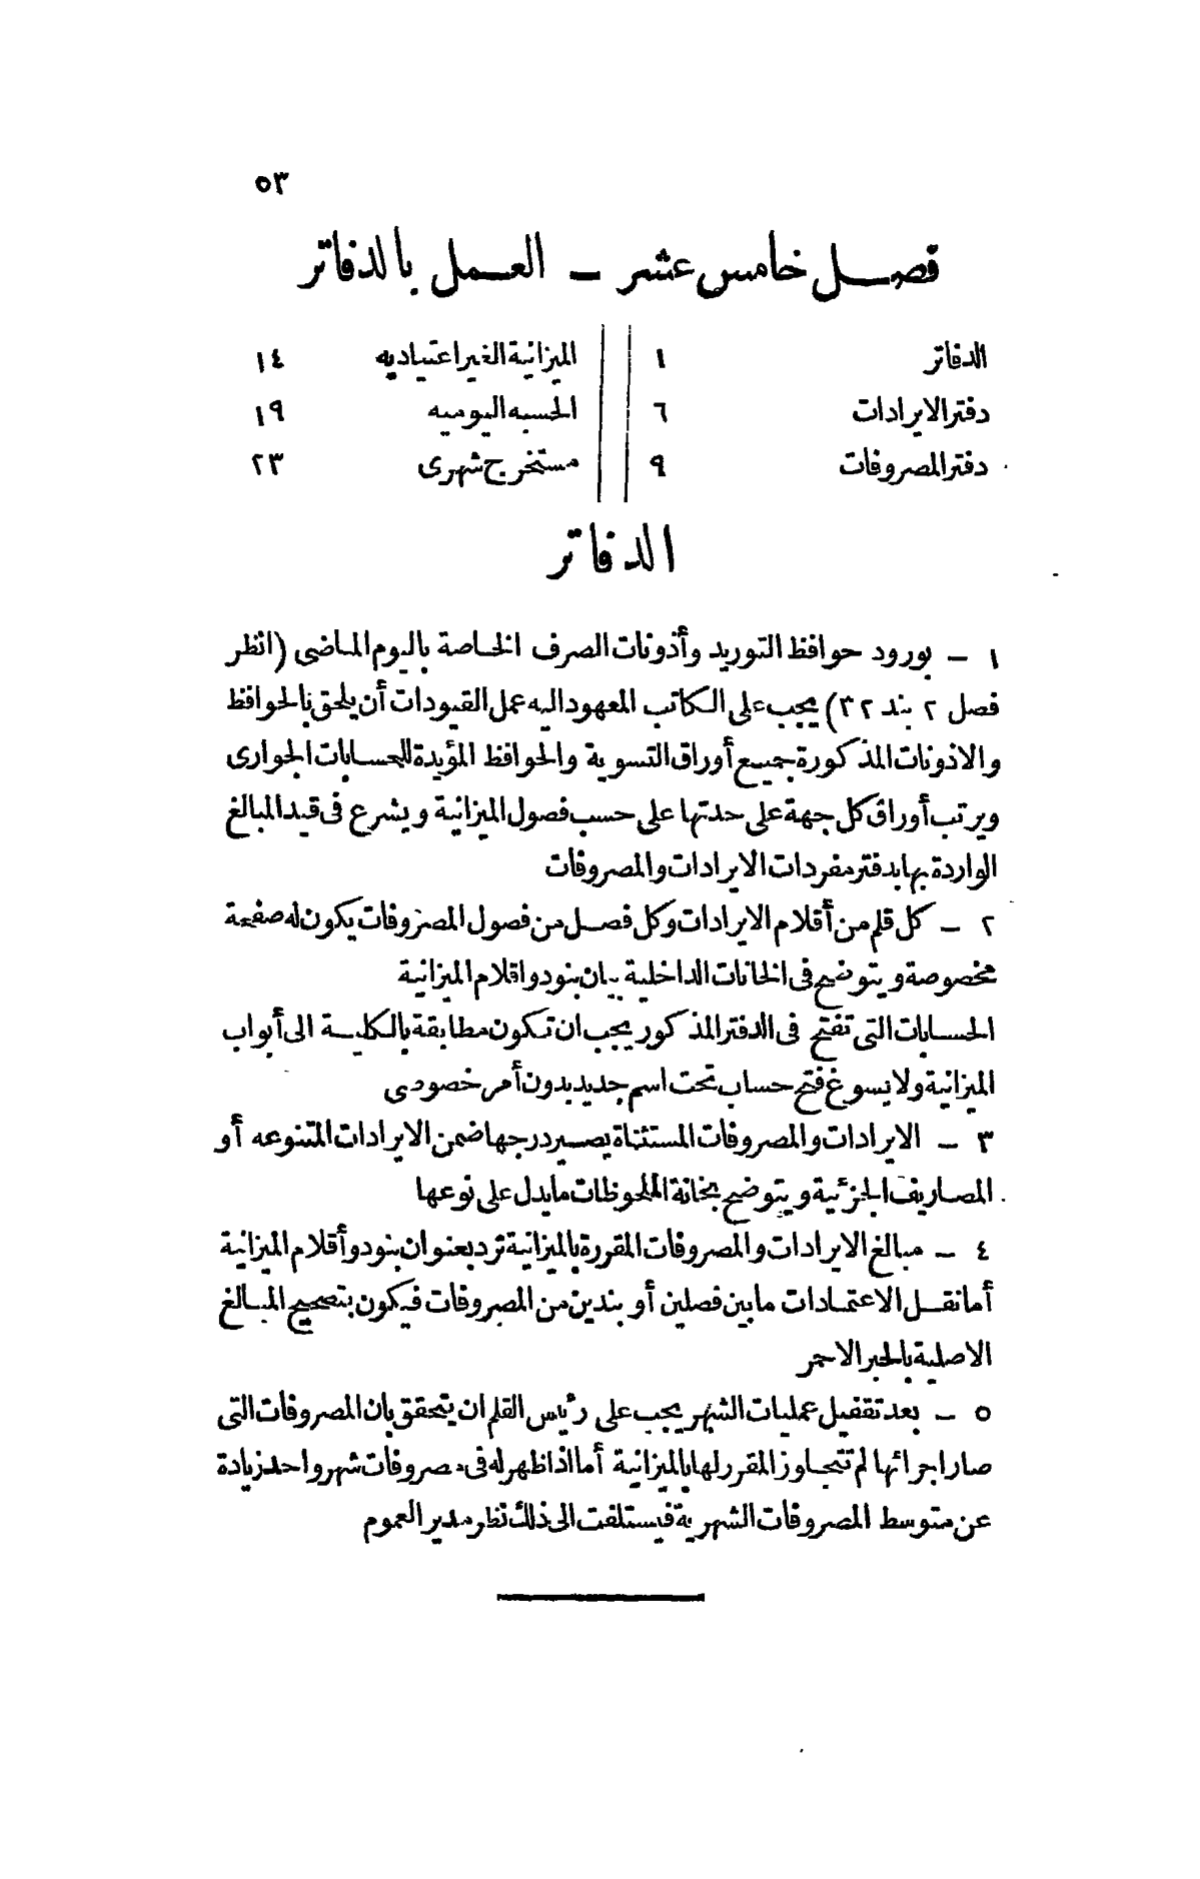 ٥٣
فصل خامس عشر — العمل بالدفاتر
الدفاتر ١ الميزانية الغير اعتياديه ١٤
دفتر الايرادات ٦ الحسبه اليوميه ١٩
دفتر المصروفات ٩ مستخرج شهرى ٢٣
الدفاتر
١ — بورود حوافظ التوريد وأذونات الصرف الخاصة باليوم الماضى (انظر
فصل ٢ بند ٣٢) يجب على الكاتب المعهود اليه عمل القيودات أن يلحق بالحوافظ
والاذونات المذكورة جميع أوراق التسوية والحوافظ المؤيدة للحسابات الجوارى
ويرتب أوراق كل جهة على حدتها على حسب فصول الميزانية ويشرع فى قيد المبالغ
الواردة بها بدفتر مفردات الايرادات والمصروفات
٢ — كل قلم من أقلام الايرادات وكل فصل من فصول المصروفات يكون له صفحة
مخصوصة ويتوضح فى الخانات الداخلية بيان بنود واقلام الميزانية
الحسابات التى تفتح فى الدفتر المذكور يجب ان تكون مطابقة بالكلية الى أبواب
الميزانية ولا يسوغ فتح حساب تحت اسم جديد بدون أمر خصوصى
٣ — الايرادات والمصروفات المستثناة يصير درجها ضمن الايرادات المتنوعه أو
المصاريف الجزئية ويتوضح بخانة الملحوظات ما يدل على نوعها
٤ — مبالغ الايرادات والمصروفات المقررة بالميزانية ترد بعنوان بنود وأقلام الميزانية
أما نقل الاعتمادات ما بين فصلين أو بندين من المصروفات فيكون بتصحيح المبالغ
الاصلية بالحبر الاحمر
٥ — بعد تقفيل عمليات الشهر يجب على رئيس القلم ان يتحقق بان المصروفات التى
صار اجرائها لم تتجاوز المقرر لها بالميزانية أما اذا ظهر له فى مصروفات شهر واحد زيادة
عن متوسط المصروفات الشهرية فيستلفت الى ذلك نظر مدير العموم